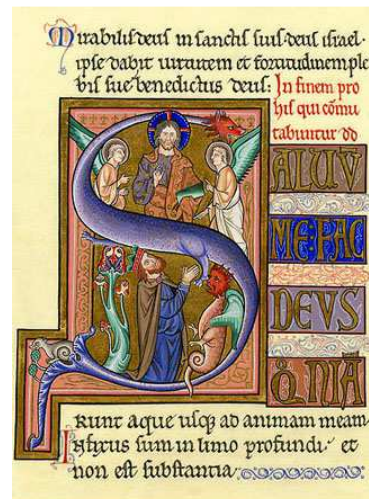 Mirabilis deus in sanctis suis deus israel.
ipse dabit uirtutem et fortitudinem ple
bis sue benedictus deus:
In finem pro
his qui cōmu
tabuntur dd
S
ALUV
ME FAC
DEVS
QNIA
Intra
runt aque usq ad animam meam
Infixus sum in limo profundi. et
non est substantia